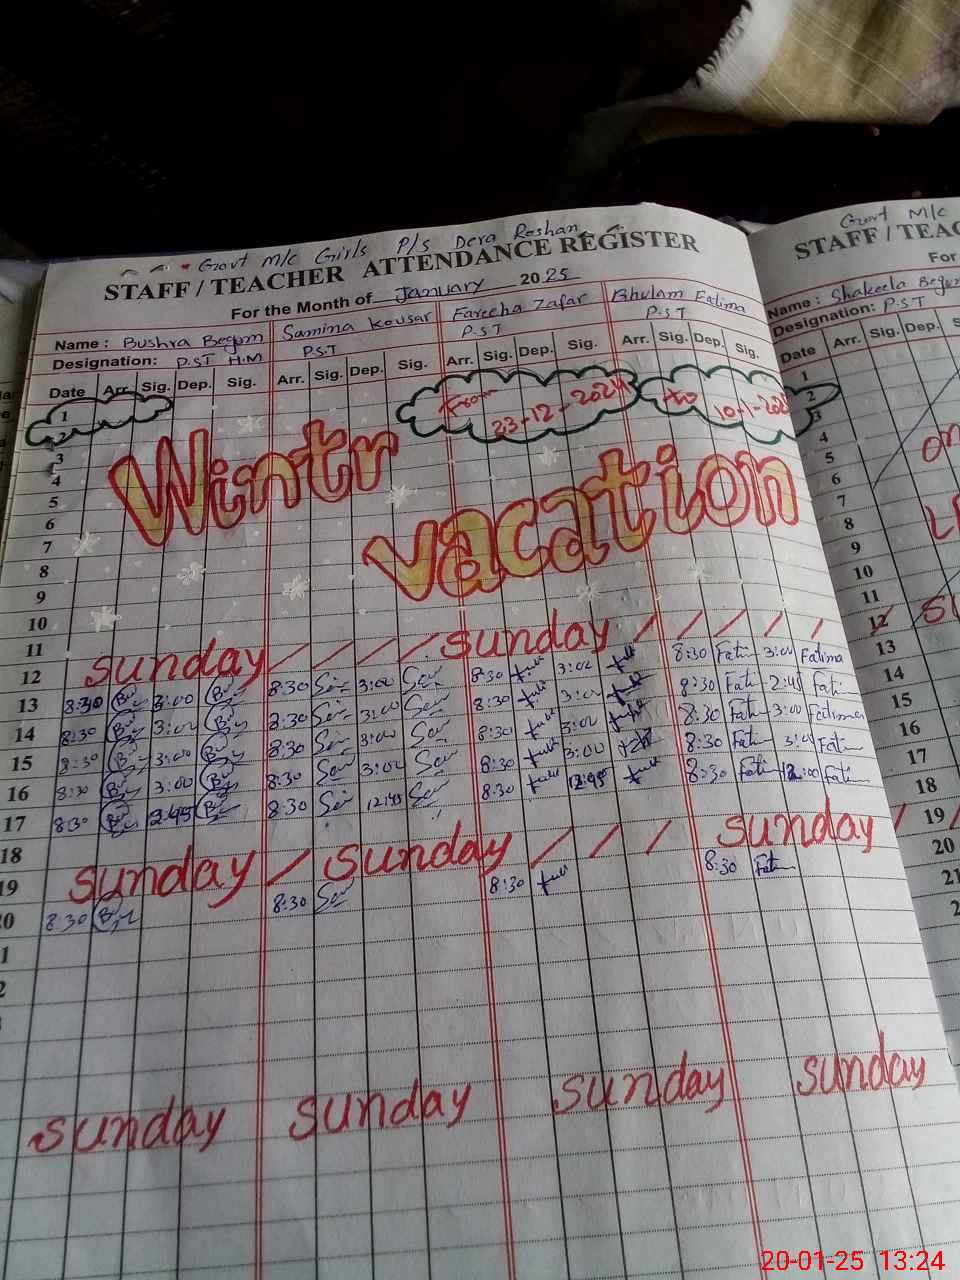 Govt M/C Girls P/S Dera Roshan
STAFF / TEACHER ATTENDANCE REGISTER
For the Month of January 2025
Name : Bushra Begum Samina Kousar Fareeha Zafar Ghulam Fatima
Designation: P.ST H.M P.S.T P.S.T P.S.T
Date Arr. Sig. Dep. Sig. Arr. Sig. Dep. Sig. Arr. Sig. Dep. Sig. Arr. Sig. Dep. Sig.
1
2 From 23-12-2024 to 10-1-202
3
4 Wintr
5
6 vacation
7
8
9
10
11
12 sunday sunday
13 8:30 3:00 8:30 3:00 8:30 3:00 8:30 Fati 3:00 Fatima
14 8:30 3:00 8:30 3:00 8:30 3:00 8:30 Fati 2:45 Fati
15 8:30 3:00 8:30 3:00 8:30 3:00 8:30 Fati 3:00 Fatima
16 8:30 3:00 8:30 3:00 8:30 3:00 8:30 Fati 3:0 Fati
17 8:30 2:45 8:30 12:45 8:30 12:45 8:30 Fati 12:00 Fati
18
19 sunday sunday sunday
20 8:30 8:30 8:30 8:30 Fati
1
2
sunday sunday sunday sunday
Govt M/C
STAFF / TEAC
For
Name : Shakeela Begum
Designation: P.S.T
Date Arr. Sig. Dep. Sig.
1
2
3
4
5
6
7
8
9
10
11
12
13
14
15
16
17
18
19
20
21
2
20-01-25 13:24